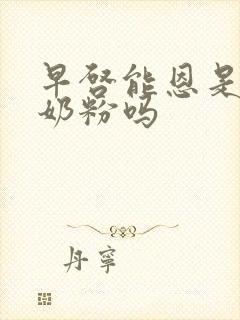 早启能恩是
奶粉吗
丹宁